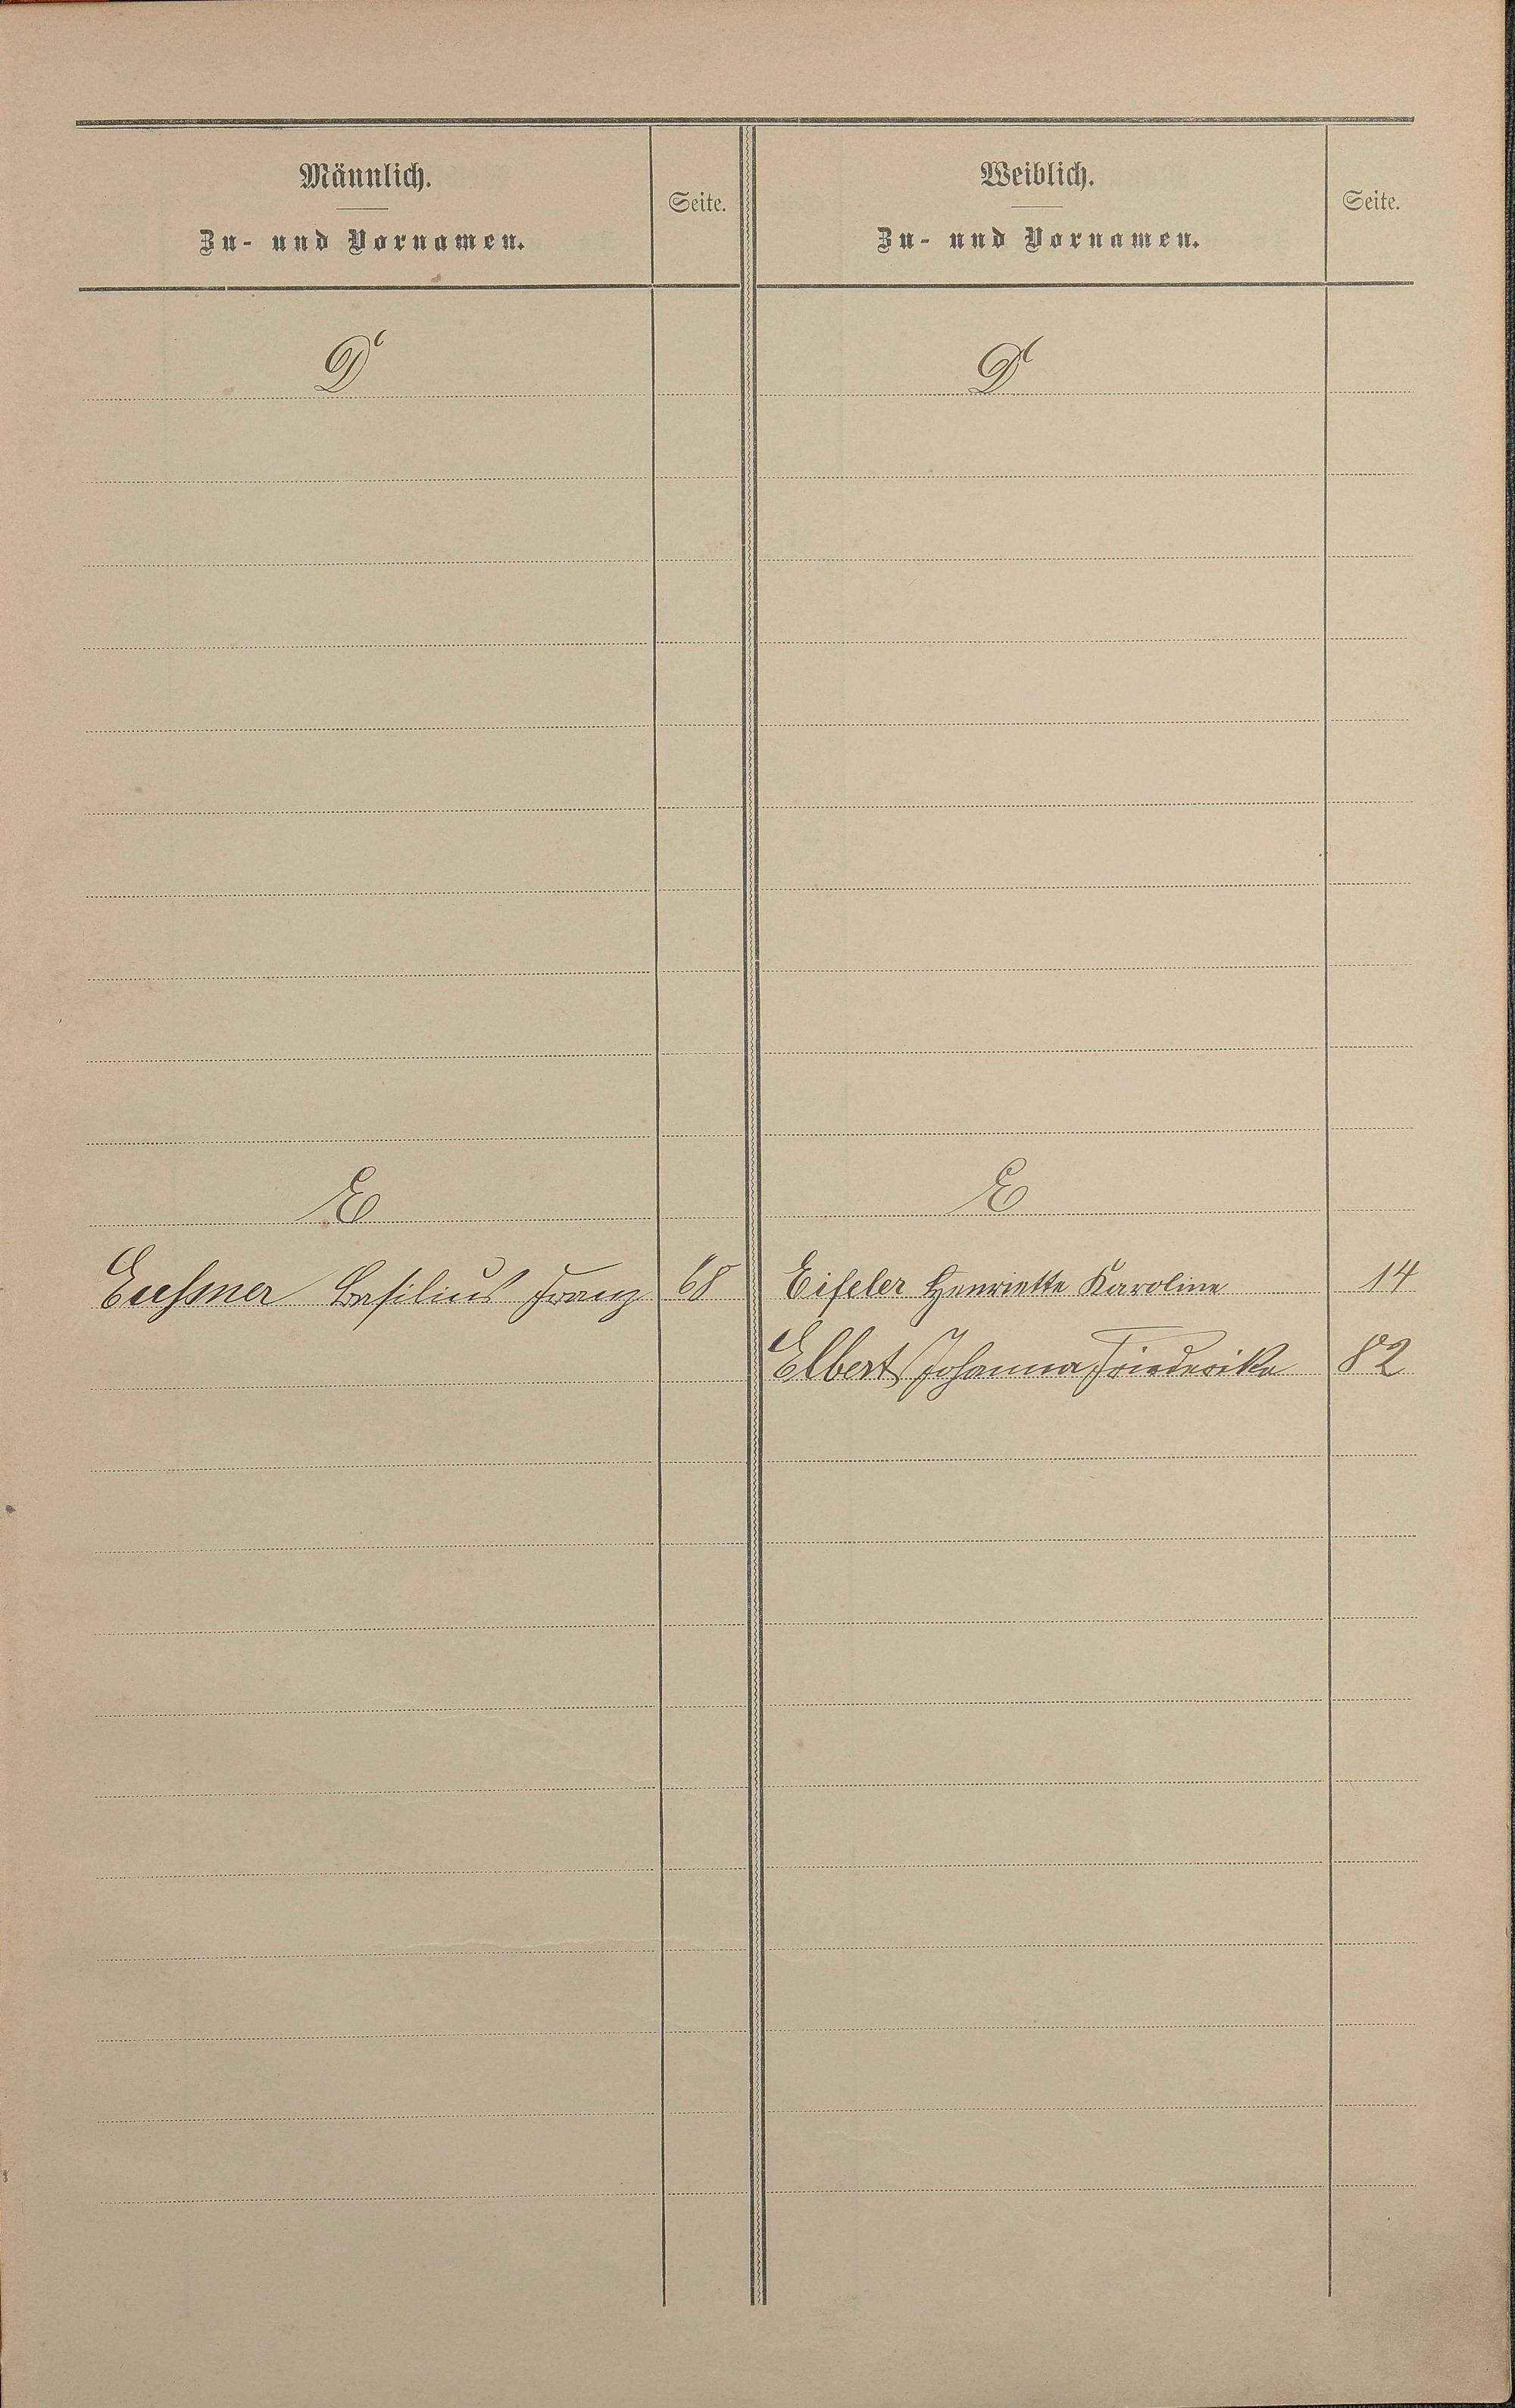 Männlich.
Zu- und Vornamen.
Seite.
Weiblich.
Zu- und Vornamen.
Seite.
D
D
E
E
Eussner Basilius Franz 68
Eifeler Henriette Karoline 14
Elbert Johanna Friederika 82